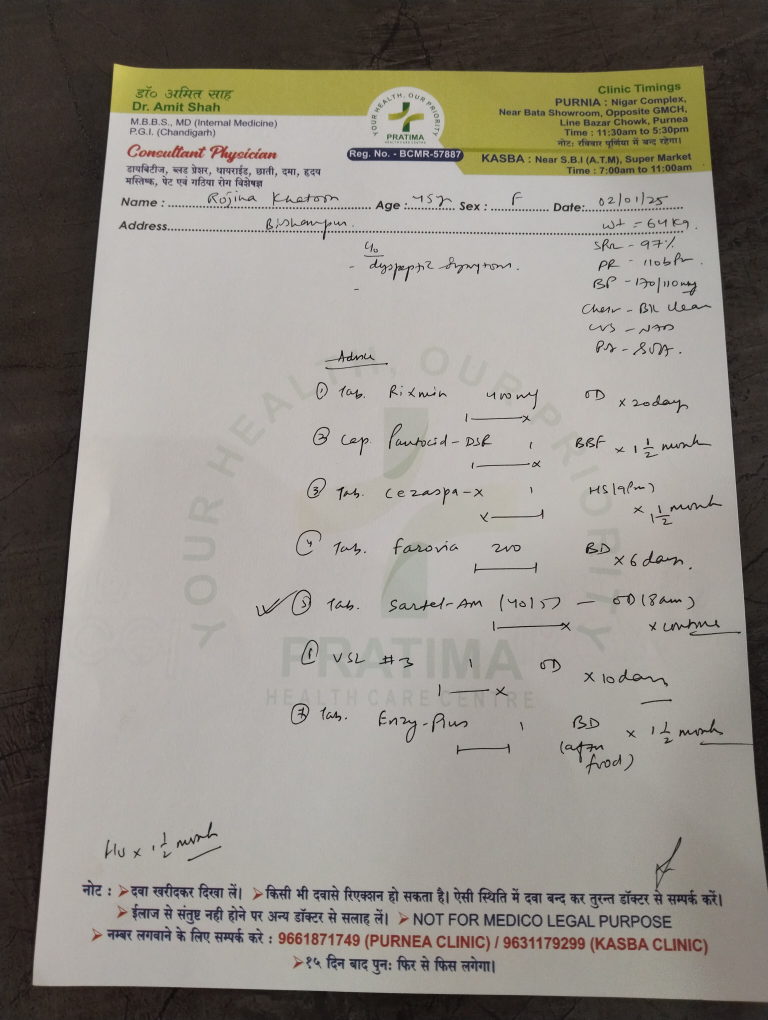 डॉ० अमित साह
Dr. Amit Shah
M.B.B.S., MD (Internal Medicine)
P.G.I. (Chandigarh)
Consultant Physician
डायबिटीज, ब्लड प्रेशर, थायराईड, छाती, दमा, हृदय
मस्तिष्क, पेट एवं गठिया रोग विशेषज्ञ
YOUR HEALTH, OUR PRIORITY
PRATIMA
HEALTH CARE CENTRE
Reg. No. - BCMR-57887
Clinic Timings
PURNIA : Nigar Complex,
Near Bata Showroom, Opposite GMCH,
Line Bazar Chowk, Purnea
Time : 11:30am to 5:30pm
नोट: रविवार पूर्णिया में बन्द रहेगा।
KASBA : Near S.B.I (A.T.M), Super Market
Time : 7:00am to 11:00am
Name : Rojina Khatoon Age : 45y Sex : F Date: 02/01/25
Address Bishanpur.
Wt = 64 Kg.
SPO2 - 97%
PR - 110 bpm.
BP - 170/110
Chest - B/L clear
CVS - NAD
PA - Soft.
c/o
- dyspeptic symptoms.
-
Advice
① Tab. Rixmin 400mg OD x 20 days
② Cap. Pantocid-DSR 1 BBF x 1 1/2 month
③ Tab. Cezaspa-X 1 HS (9pm) x 1 1/2 month
④ Tab. Farovia 200 BD x 6 days.
⑤ Tab. Sartel-AM (40/5) — OD (8am) x continue
VSL #3 1 OD x 10 days
⑦ Tab. Enzy-Plus 1 BD (after food) x 1 1/2 month
YOUR HEALTH, OUR PRIORITY
PRATIMA
HEALTH CARE CENTRE
x 1 1/2 month
नोट : ➤दवा खरीदकर दिखा लें। ➤किसी भी दवासे रिएक्शन हो सकता है। ऐसी स्थिति में दवा बन्द कर तुरन्त डॉक्टर से सम्पर्क करें।
➤ईलाज से संतुष्ट नही होने पर अन्य डॉक्टर से सलाह लें। ➤NOT FOR MEDICO LEGAL PURPOSE
➤नम्बर लगवाने के लिए सम्पर्क करे : 9661871749 (PURNEA CLINIC) / 9631179299 (KASBA CLINIC)
➤१५ दिन बाद पुन: फिर से फिस लगेगा।